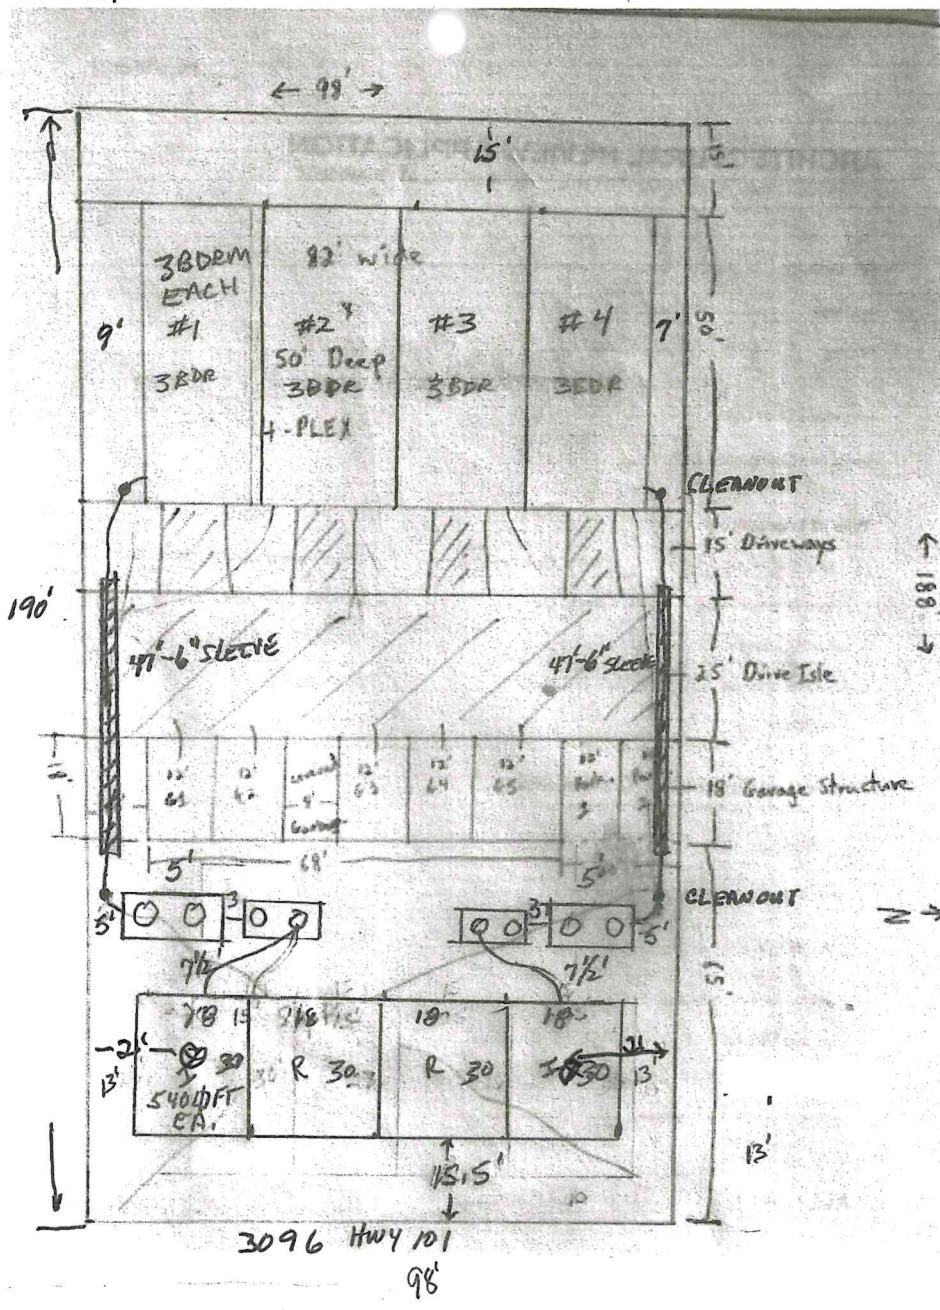 ← 98' →
15'
15'
3BDRM
EACH
#1
3BDR
82' wide
#2 x
50' Deep
3BDR
4-PLEX
#3
3BDR
#4
3BDR
9'
7'
50'
CLEANOUT
15' Driveways
← 188 →
190'
47'-6" SLEEVE
47'-6" SLEEVE
25' Drive Isle
18'
12'
G1
12'
G2
covered
8'
Garbage
12'
G3
12'
G4
12'
G5
18' Garage Structure
68'
5'
5'
CLEANOUT
5'
3'
3'
5'
N →
7½'
7½'
65'
18
18
18
21'
13'
30
540 ☐ FT
EA.
R 30
R 30
30
21'
13
13'
15.5'
10
3096 HWY 101
98'